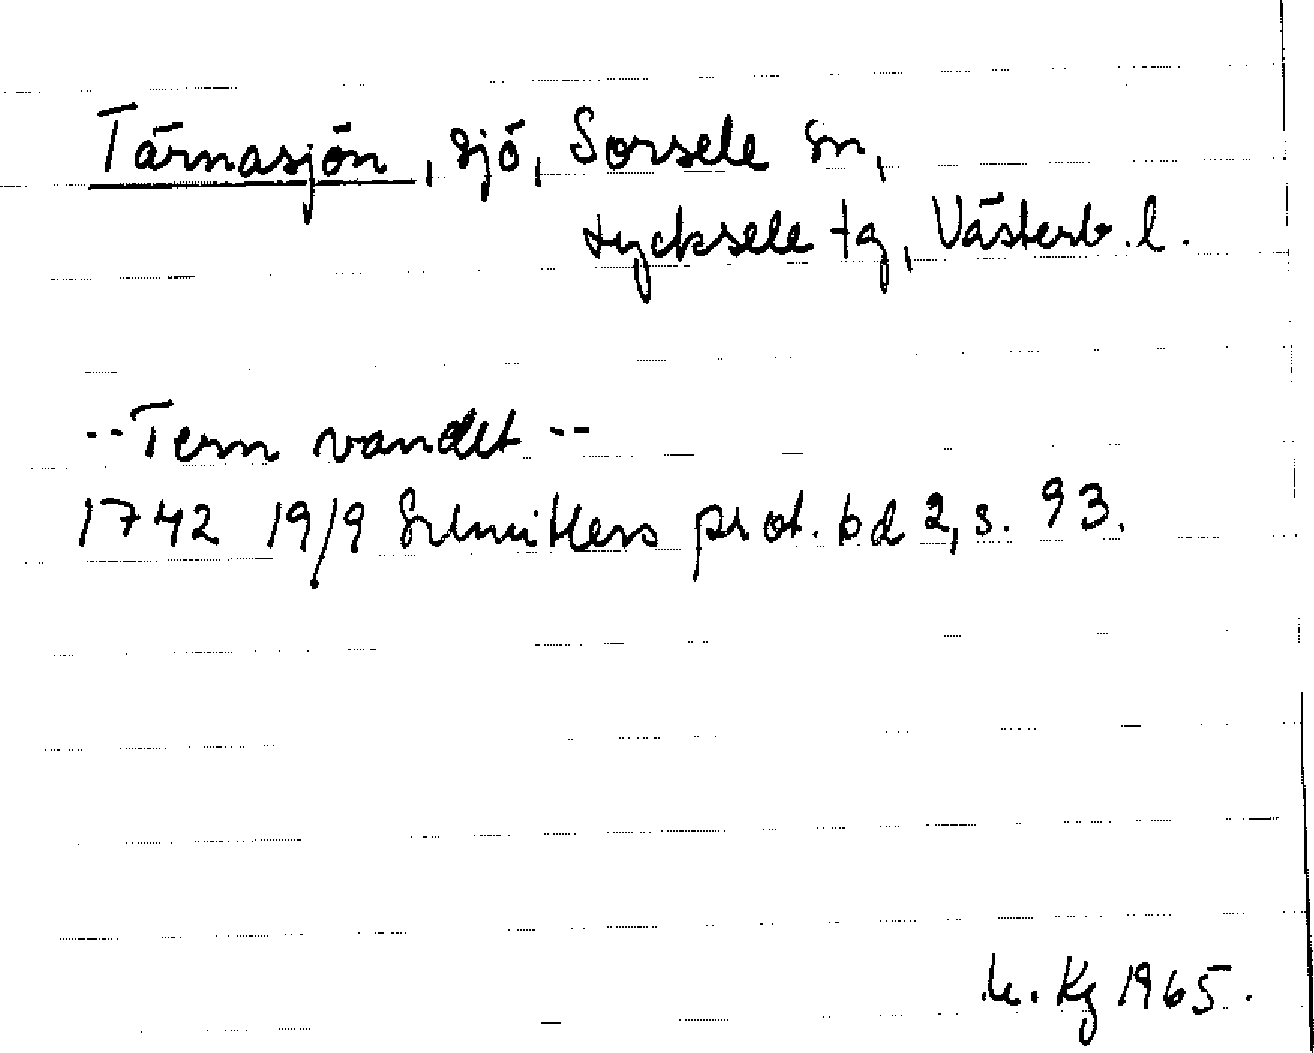 Tärnasjön, sjö, Sorsele sn,
Lycksele tg, Västerb. l.
-- Tern vandet --
1742 19/9 Schnitlers prot. bd 2, s. 93.
Kg 1965.